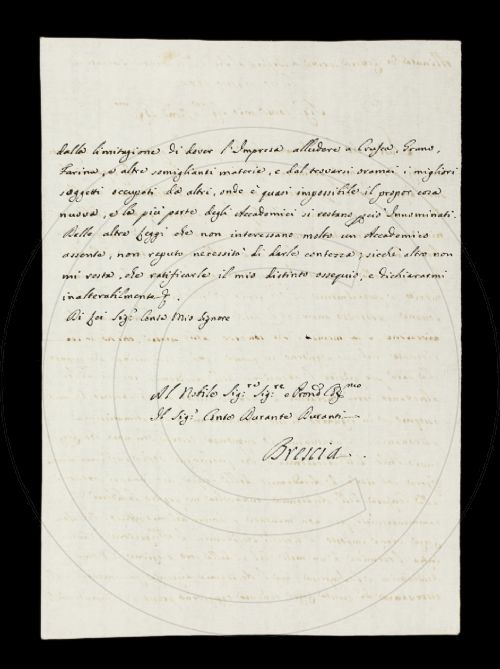 dalla limitazione di dover l'Impresa alludere a Crusca, Grano,
Farina, e altre somiglianti materie, e dal trovarsi oramai i migliori
soggetti occupati da altri, onde è quasi impossibile il propor cosa
nuova, e la più parte degli Accademici si restano però Innominati.
Delle altre Leggi che non interessano molto un Accademico
assente, non reputo necessità di darle contezza; sicchè altro non
mi resta, che ratificarle il mio distinto ossequio, e dichiararmi
inalterabilmente
Di Lei Sig.r Conte Mio Signore
Al Nobile Sig.re Sig.re e Pron
Il Sig.r Conte Durante Duranti
Brescia.